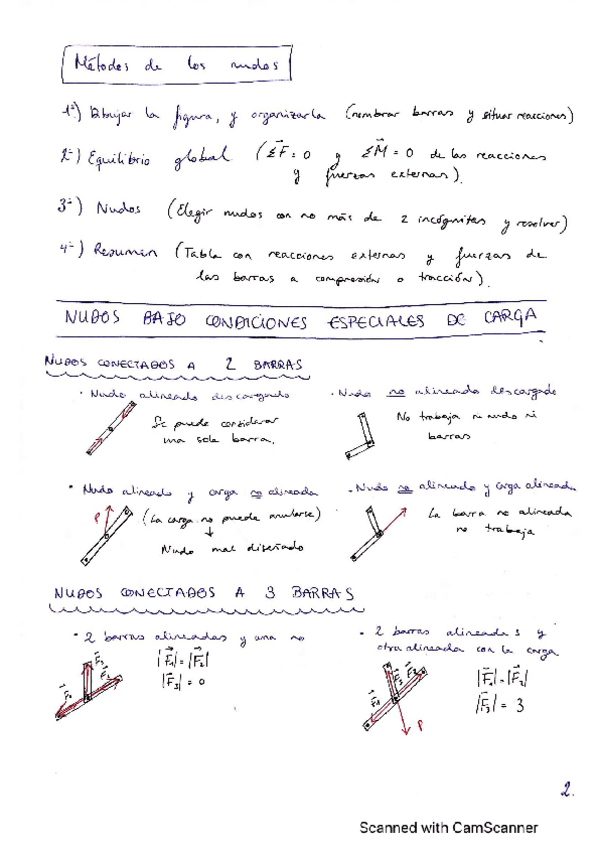 Métodos de los nudos
1º) Dibujar la figura, y organizarla (nombrar barras y situar reacciones)
2º) Equilibrio global (ΣF⃗ = 0 y ΣM⃗ = 0 de las reacciones
y fuerzas externas).
3º) Nudos (Elegir nudos con no más de 2 incógnitas y resolver)
4º) Resumen (Tabla con reacciones externas y fuerzas de
las barras a compresión o tracción).
NUDOS BAJO CONDICIONES ESPECIALES DE CARGA
NUDOS CONECTADOS A 2 BARRAS
· Nudo alineado descargado
Se puede considerar
una sola barra.
· Nudo no alineado descargado
No trabaja ni nudo ni
barras
· Nudo alineado y carga no alineada
P
(La carga no puede anularse)
↓
Nudo mal diseñado
· Nudo no alineado y carga alineada
La barra no alineada
no trabaja
NUDOS CONECTADOS A 3 BARRAS
· 2 barras alineadas y una no
|F⃗₁| = |F⃗₂|
|F⃗₃| = 0
· 2 barras alineadas y
otra alineada con la carga
P
|F⃗₁| = |F⃗₂|
|F⃗₃| = 3
2.
Scanned with CamScanner